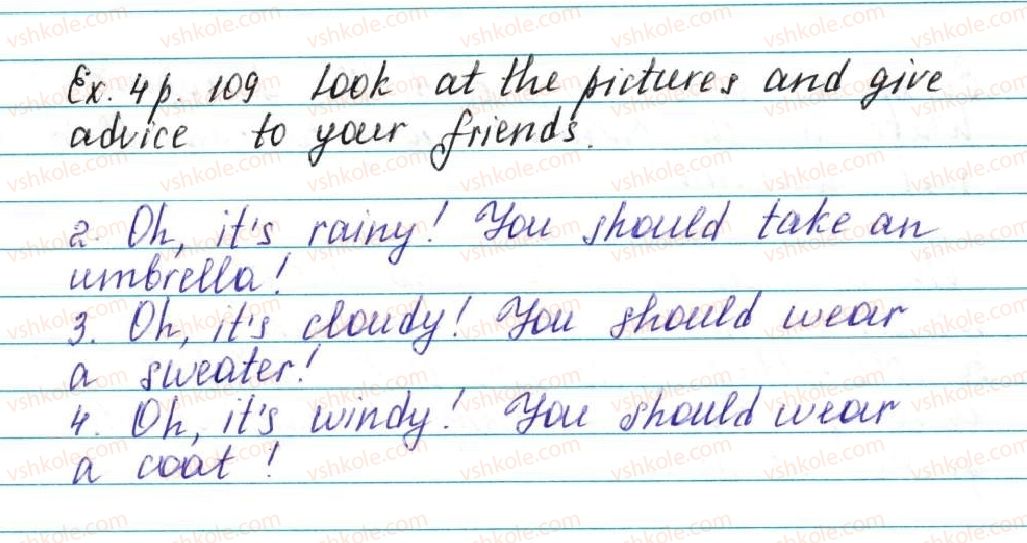 Ex. 4 p. 109 Look at the pictures and give
advice to your friends.
2. Oh, it's rainy! You should take an
umbrella!
3. Oh, it's cloudy! You should wear
a sweater!
4. Oh, it's windy! You should wear
a coat!